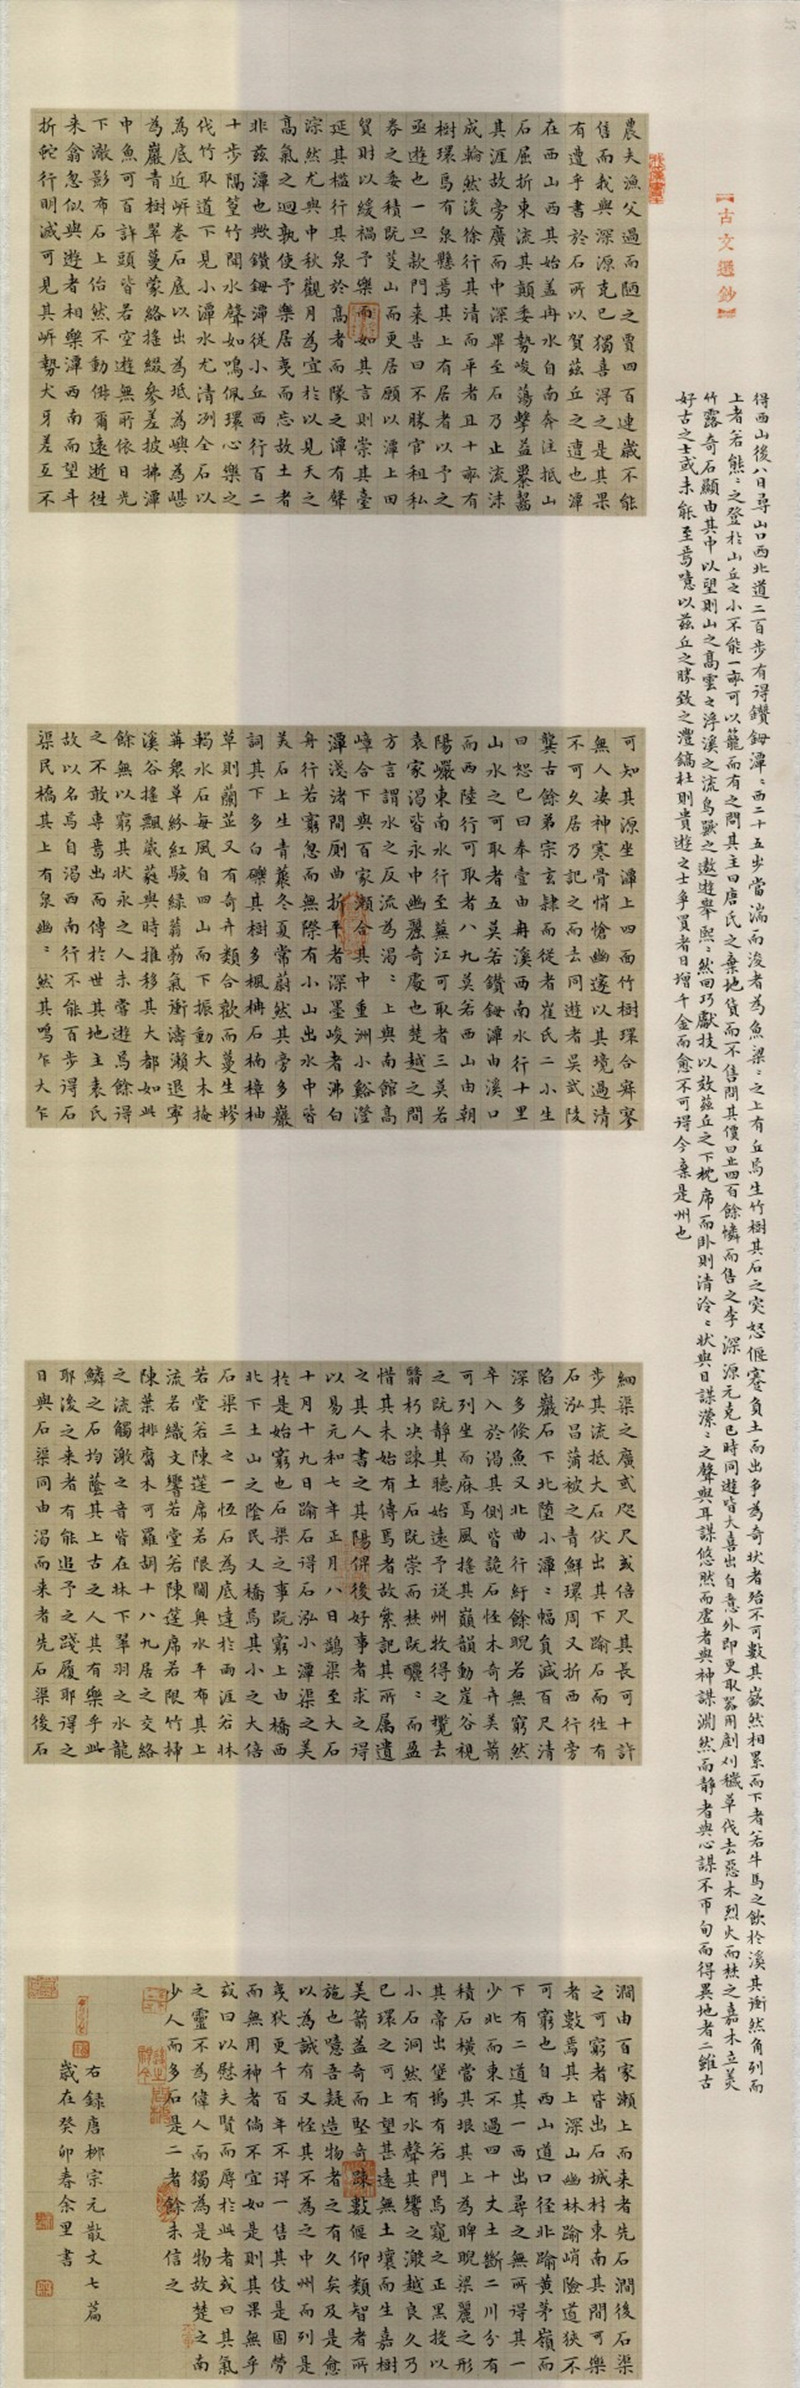 【古文通鈔】
得西山後八日尋山口西北道二百步有得鑽鉧潭〻西二十五步當湍而浚者為魚梁〻之上有丘焉生竹樹其石之突怒偃蹇負土而出爭為奇狀者殆不可數其嶔然相累而下者若牛馬之飲於溪其衝然角列而
上者若熊〻之登於山丘之小不能一畝可以籠而有之問其主曰唐氏之棄地貨而不售問其價曰止四百餘憐而售之李深源元克已時同遊皆大喜出自意外即更取器用剷刈穢草伐去惡木烈火而焚之嘉木立美
竹露奇石顯由其中以望則山之高雲之浮溪之流鳥獸之遨遊舉熙〻然回巧獻技以效茲丘之下枕席而臥則清泠〻狀與目謀瀠〻之聲與耳謀悠然而虛者與神謀淵然而靜者與心謀不帀旬而得異地者二雖古
好古之士或未能至焉噫以茲丘之勝致之灃鎬杜則貴遊之士爭買者日增千金而愈不可得今棄是州也
農夫漁父過而陋之賈四百連歲不能
售而我與深源克已獨喜得之是其果
有遭乎書於石所以賀茲丘之遭也潭
在西山西其始蓋冉水自南奔注抵山
石屈折東流其顛委勢峻蕩擊益暴齧
其涯故旁廣而中深畢至石乃止流沫
成輪然後徐行其清而平者且十畝有
樹環焉有泉懸焉其上有居者以予之
亟遊也一旦款門來告曰不勝官租私
券之委積既芟山而更居願以潭上田
貿財以緩禍予樂而如其言則崇其臺
延其檻行其泉於高者而墜之潭有聲
淙然尤與中秋觀月為宜於以見天之
高氣之迥孰使予樂居夷而忘故土者
非茲潭也歟鑽鉧潭從小丘西行百二
十步隔篁竹聞水聲如鳴佩環心樂之
伐竹取道下見小潭水尤清冽全石以
為底近岸卷石底以出為坻為嶼為嵁
為巖青樹翠蔓蒙絡搖綴參差披拂潭
中魚可百許頭皆若空遊無所依日光
下澈影布石上佁然不動俶爾遠逝往
来翕忽似與遊者相樂潭西南而望斗
折蛇行明滅可見其岸勢犬牙差互不
可知其源坐潭上四面竹樹環合寂寥
無人凄神寒骨悄愴幽邃以其境過清
不可久居乃記之而去同遊者吳武陵
龔古餘弟宗玄隸而從者崔氏二小生
曰恕已曰奉壹由冉溪西南水行十里
山水之可取者五莫若鑽鉧潭由溪口
而西陸行可取者八九莫若西山由朝
陽巖東南水行至蕪江可取者三莫若
袁家渴皆永中幽麗奇處也楚越之間
方言謂水之反流為渴〻上與南館高
嶂合下與百家瀨合其中重洲小谿澄
潭淺渚間廁曲折平者深墨峻者沸白
舟行若窮忽而無際有小山出水中皆
美石上生青叢冬夏常蔚然其旁多巖
詞其下多白礫其樹多楓柟石楠樟柚
草則蘭芷又有奇卉類合歡而蔓生轇
轕水石每風自四山而下振動大木掩
苒衆草紛紅駭綠蓊葧氣衝濤瀨退寧
溪谷搖飄葳蕤與時推移其大都如此
餘無以窮其狀永之人未嘗遊焉餘得
之不敢專焉出而傳於世其地主袁氏
故以名焉自渴西南行不能百步得石
渠民橋其上有泉幽〻然其鳴乍大乍
細渠之廣或咫尺或倍尺其長可十許
步其流抵大石伏出其下踰石而往有
石泓昌蒲被之青鮮環周又折西行旁
陷巖石下北墮小潭〻幅負減百尺清
深多鯈魚又北曲行紆餘睨若無窮然
卒入於渴其側皆詭石怪木奇卉美箭
可列坐而庥焉風搖其巔韻動崖谷視
之既靜其聽始遠予從州牧得之攬去
翳朽決踈土石既崇而焚既釃〻而盈
惜其未始有傳焉者故絫記其所属遺
之其人書之其陽俾後好事者求之得
以易元和七年正月八日鷁渠至大石
十月十九日踰石得石泓小潭渠之美
於是始窮也石渠之事既窮上由橋西
北下土山之陰民又橋焉其小之大倍
石渠三之一恆石為底達於兩涯若牀
若堂若陳筵席若限閫奧水平布其上
流若織文響若堂若陳筵席若限竹掃
陳葉排腐木可羅胡十八九居之交絡
之流觸激之音皆在林下翠羽之水龍
鱗之石均蔭其上古之人其有樂乎此
耶後之來者有能追予之踐履耶得之
日與石渠同由渴而来者先石渠後石
澗由百家瀨上而来者先石澗後石渠
之可窮者皆出石城村東南其間可樂
者數焉其上深山幽林踰峭險道狹不
可窮也自西山道口徑北踰黄茅嶺而
下有二道其一西出尋之無所得其一
少北而東不過四十丈土斷二川分有
積石橫當其垠其上為睥睨梁麗之形
其帝出堡塢有若門焉窺之正黑投以
小石洞然有水聲其響之激越良久乃
已環之可上望甚遠無土壤而生嘉樹
美箭益奇而堅奇踈數偃仰類智者所
施也噫吾疑造物者之有久矣及是愈
以為誠有又怪其不為之中州而列是
夷狄更千百年不得一售其伎是固勞
而無用神者倘不宜如是則其果無乎
或曰以慰夫賢而辱於此者或曰其氣
之靈不為偉人而獨為是物故楚之南
少人而多石是二者餘未信之
右録唐柳宗元散文七篇
歲在癸卯春余里書